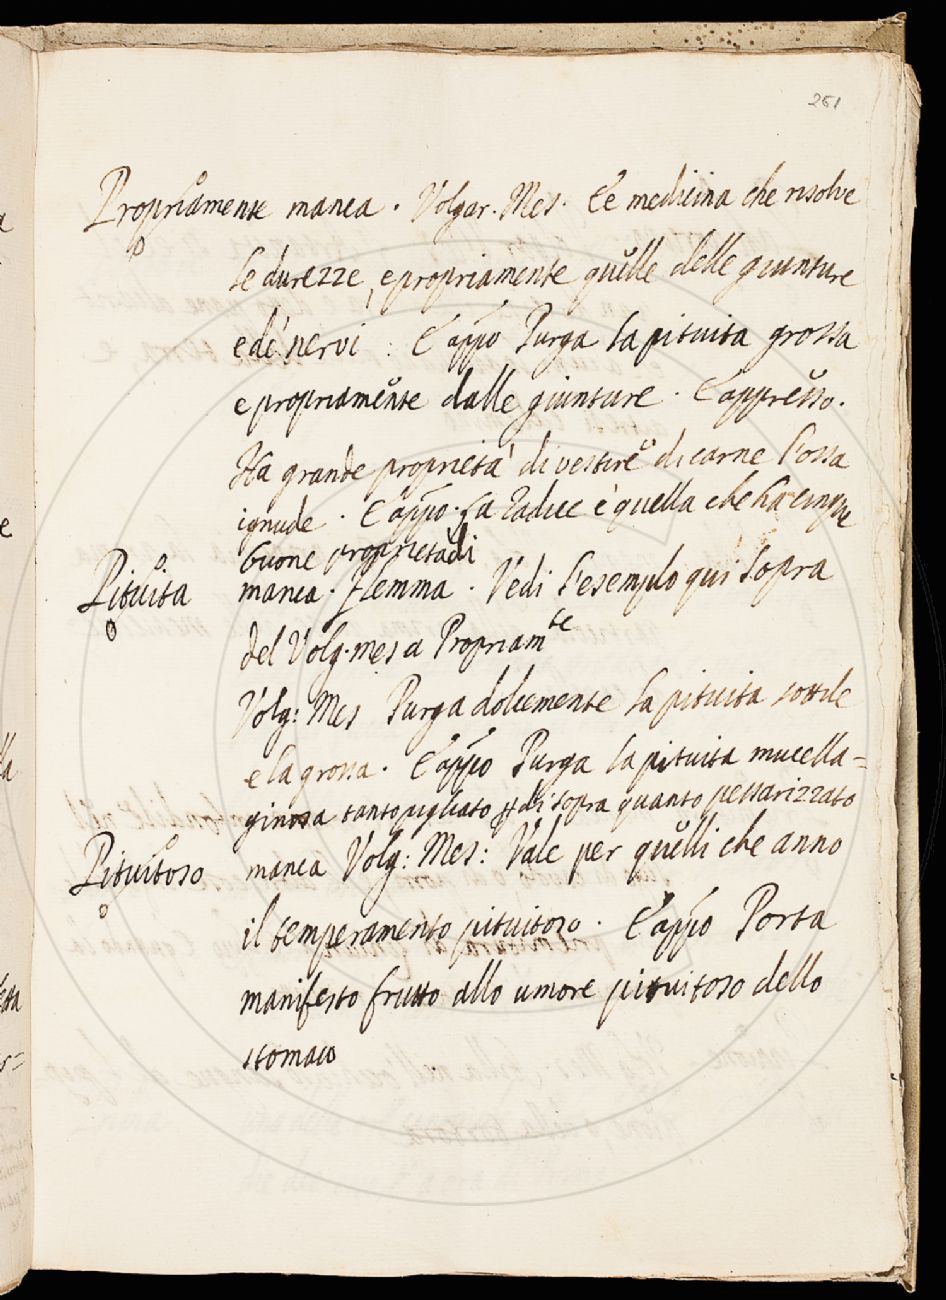 251
Propriamente manca. Volgar. Mes. È e medicina che risolve
le durezze, e propriamente quelle delle giunture
e de' nervi: E appo Purga la pituita grossa
e propriamente dalle giunture. E appresso.
Ha grande proprietà di vestire di carne l'ossa
ignude. E appo. La radice è quella che ha cinque
buone proprietadi
Pituita manca. Flemma. Vedi l'esemplo qui sopra
del Volg. mes a Propriamte
Volg: Mes Purga dolcemente la pituita sottile
e la grossa. E appo Purga la pituita mucella=
ginosa tanto pigliato di sopra quanto pessarizzato
Pituitoso manca Volg: Mes: Vale per quelli che anno
il temperamento pituitoso. E appo Porta
manifesto frutto allo umore pituitoso dello
stomaco